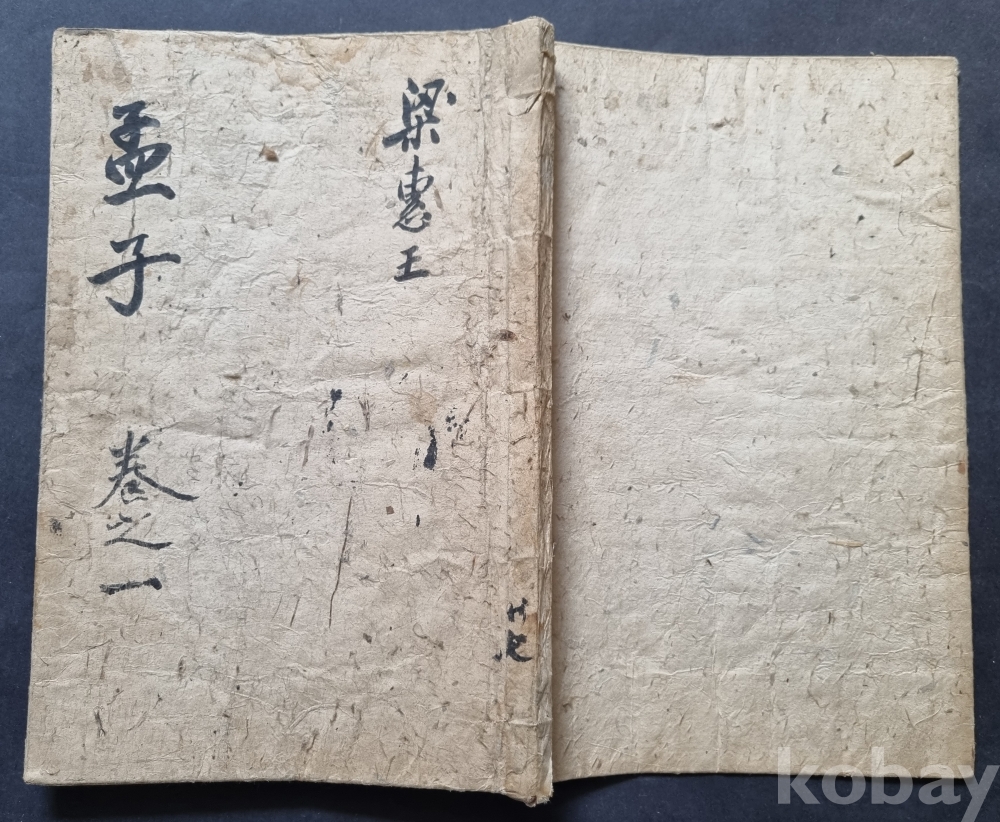 梁惠王
孟子 卷之一
共七
kobay